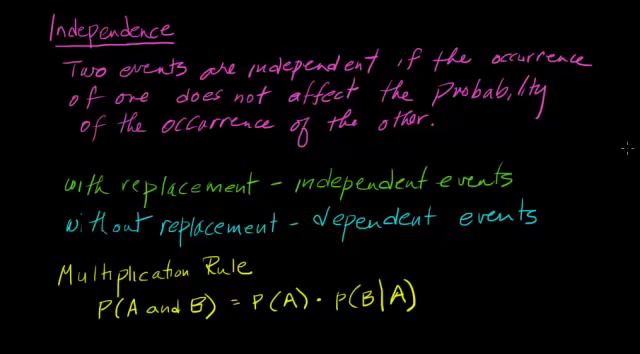 Independence
Two events are independent if the occurrence
of one does not affect the probability
of the occurrence of the other.
with replacement - independent events
without replacement - dependent events
Multiplication Rule
P(A and B) = P(A) · P(B|A)